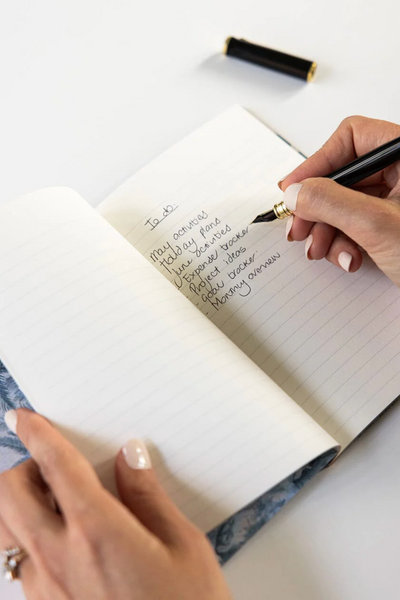 To do:
May activities
Holiday plans
June activities
Expense tracker
Project ideas
Goal tracker
Monthly overview